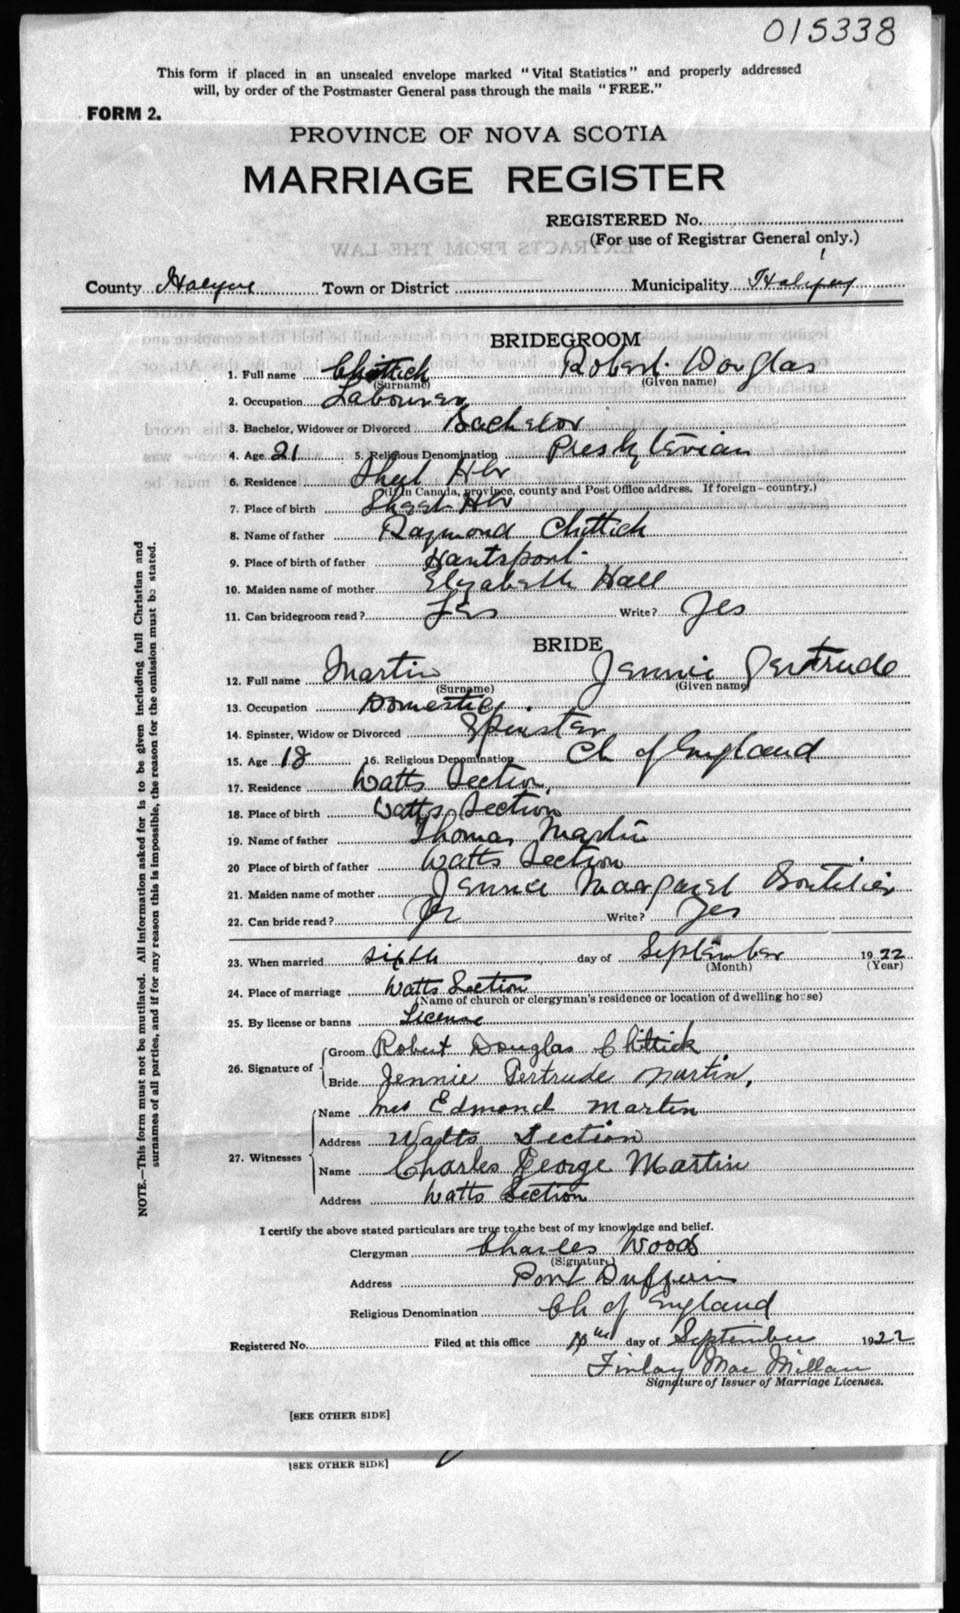 015338
This form if placed in an unsealed envelope marked "Vital Statistics" and properly addressed
will, by order of the Postmaster General pass through the mails "FREE."
FORM 2.
PROVINCE OF NOVA SCOTIA
MARRIAGE REGISTER
REGISTERED No.
(For use of Registrar General only.)
County Halifax Town or District Municipality Halifax
BRIDEGROOM
1. Full name Chittick Robert Douglas
(Surname) (Given name)
2. Occupation Labourer
3. Bachelor, Widower or Divorced Bachelor
4. Age 21 5. Religious Denomination Presbyterian
6. Residence Sheet Hbr
(If in Canada, province, county and Post Office address. If foreign - country.)
7. Place of birth Sheet Hbr
8. Name of father Raymond Chittick
9. Place of birth of father Hantsport
10. Maiden name of mother Elizabeth Hall
11. Can bridegroom read? Yes Write? Yes
BRIDE
12. Full name Martin Jennie Gertrude
(Surname) (Given name)
13. Occupation Domestic
14. Spinster, Widow or Divorced Spinster
15. Age 18 16. Religious Denomination Ch of England
17. Residence Watts Section
18. Place of birth Watts Section
19. Name of father Thomas Martin
20 Place of birth of father Watts Section
21. Maiden name of mother Jennie Margaret Boutilier
22. Can bride read? Yes Write? Yes
23. When married sixth day of September 1922
(Month) (Year)
24. Place of marriage Watts Section
(Name of church or clergyman's residence or location of dwelling house)
25. By license or banns License
26. Signature of Groom Robert Douglas Chittick
Bride Jennie Gertrude Martin,
27. Witnesses Name Mrs Edmond Martin
Address Watts Section
Name Charles George Martin
Address Watts Section
I certify the above stated particulars are true to the best of my knowledge and belief.
Clergyman Charles Wood
(Signature)
Address Port Dufferin
Religious Denomination Ch of England
Registered No. Filed at this office day of September 1922
Finlay Mac Millan
Signature of Issuer of Marriage Licenses.
[SEE OTHER SIDE]
[SEE OTHER SIDE]
NOTE.—This form must not be mutilated. All information asked for is to be given including full Christian and
surnames of all parties, and if for any reason this is impossible, the reason for the omission must be stated.